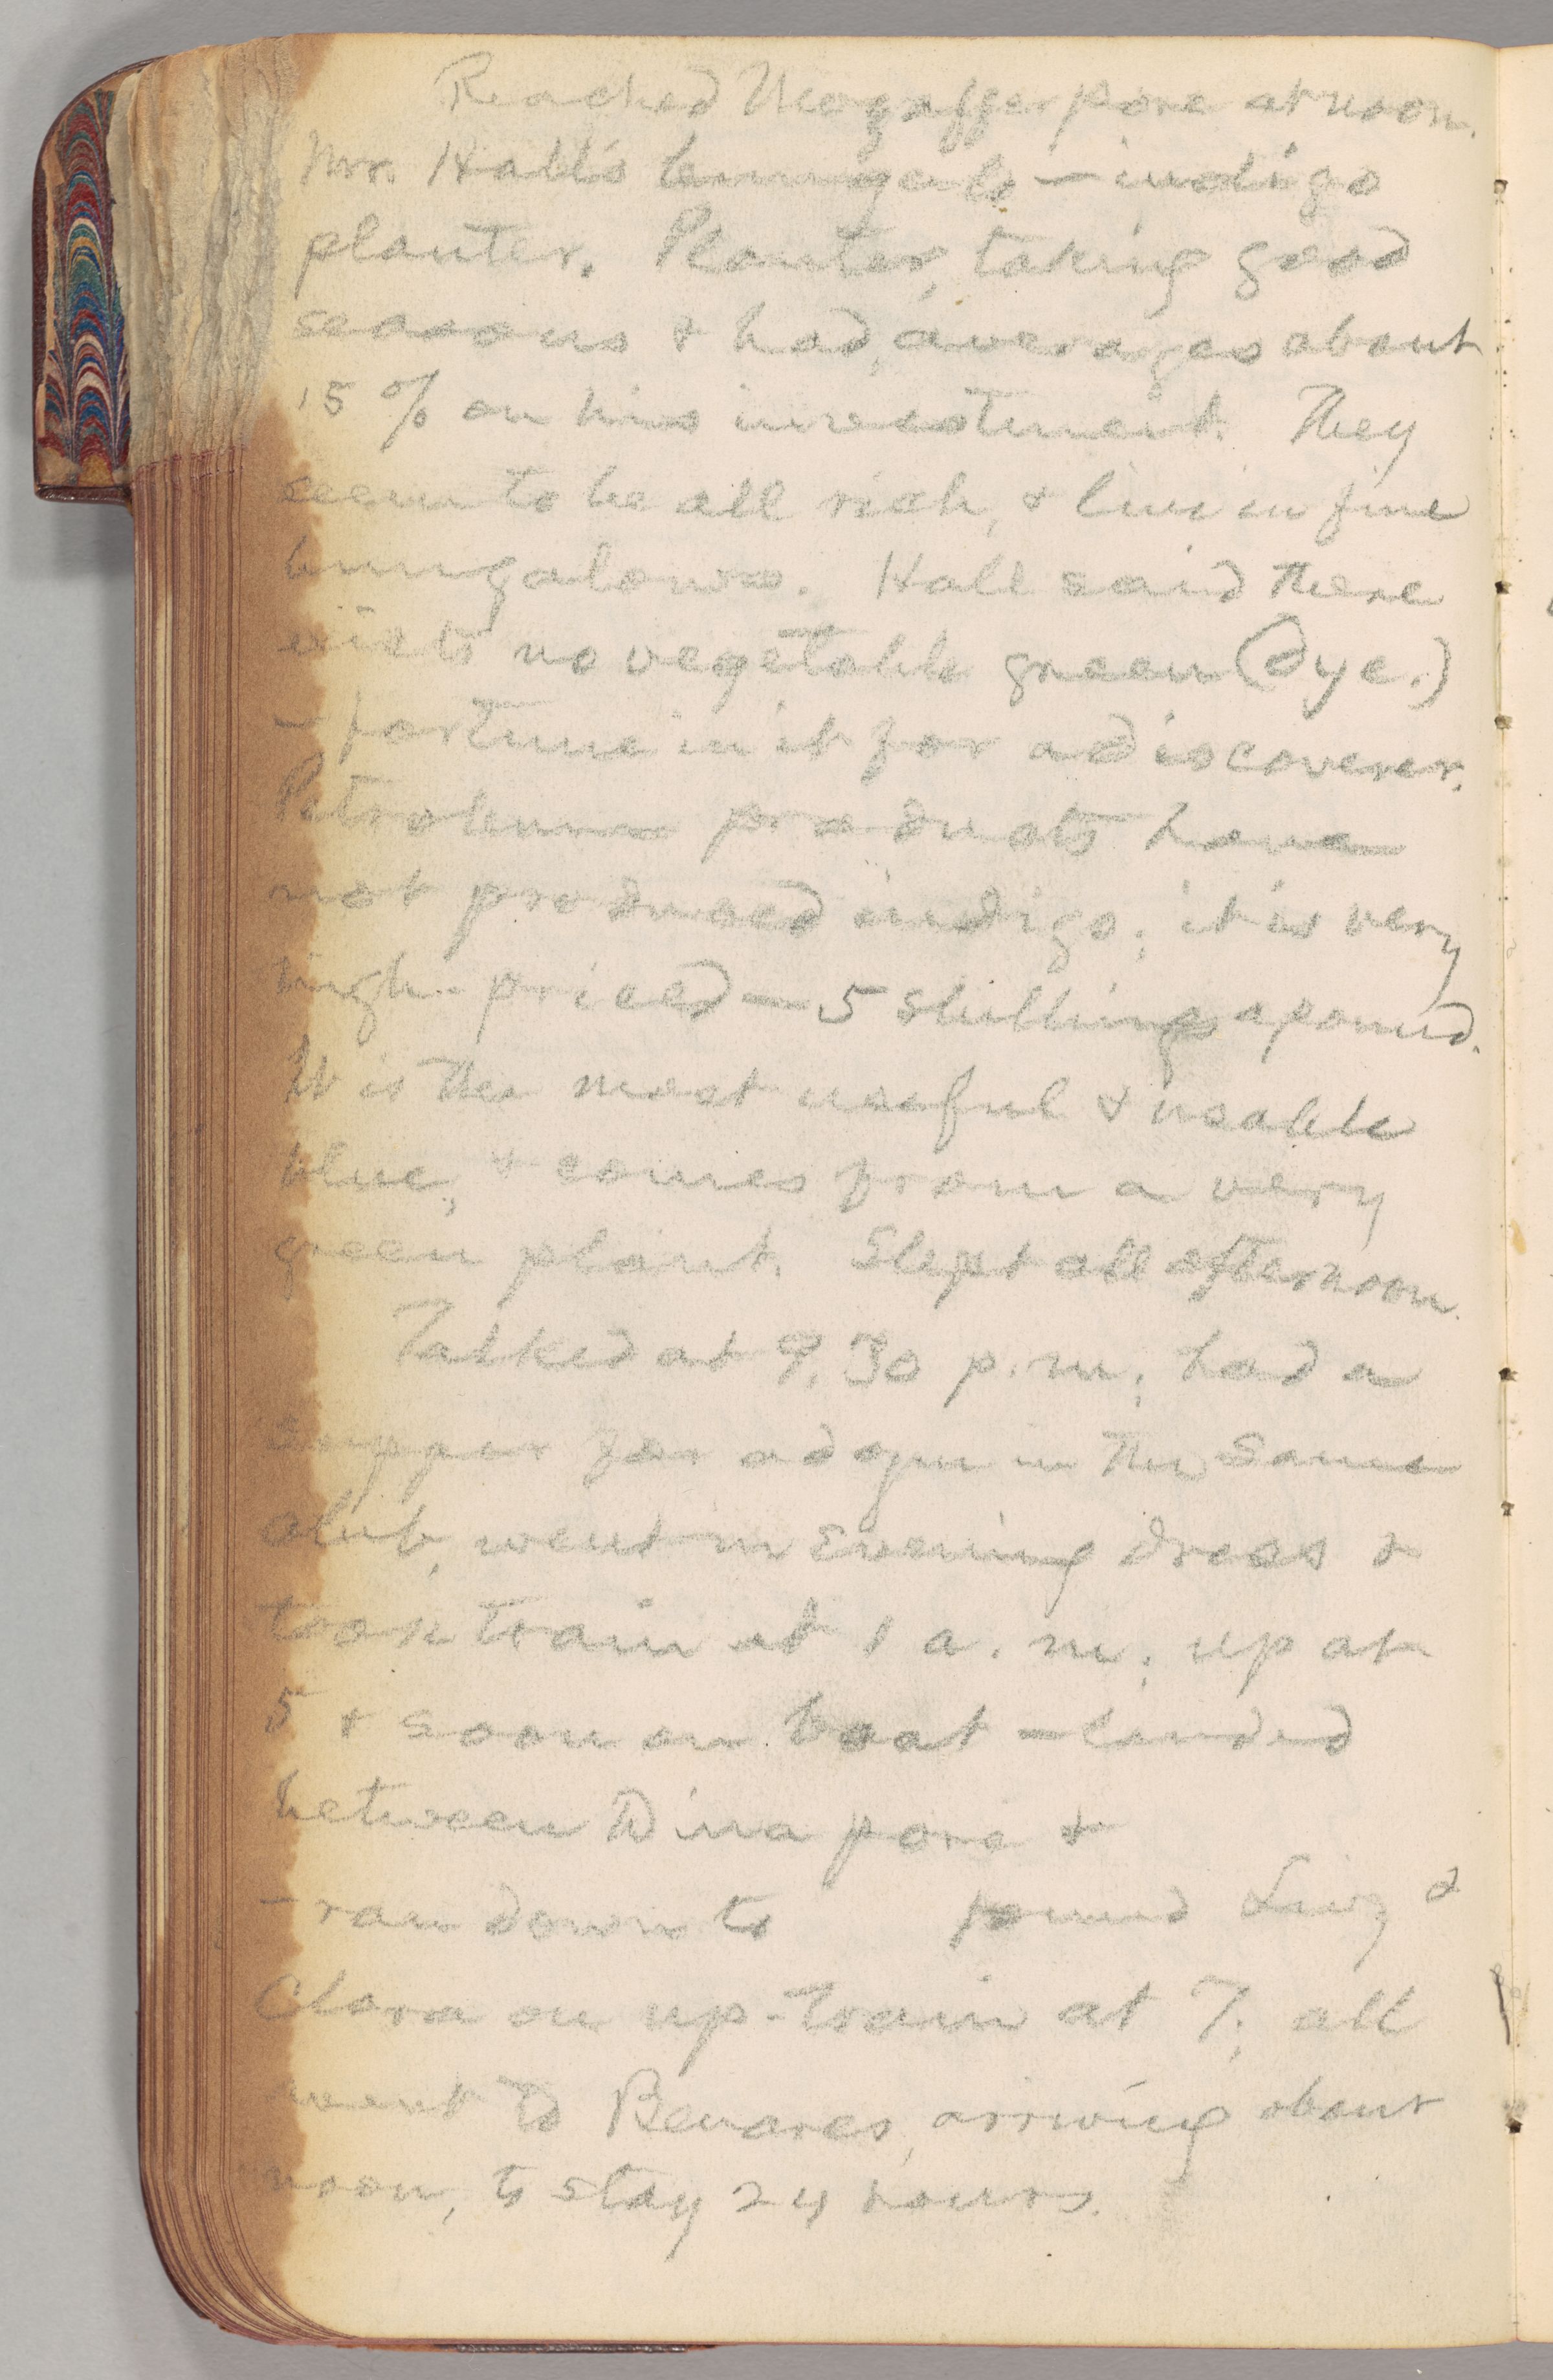 Reached Mozzafferpore at noon.
Mr. Hall's bungalo — indigo
planter. Planter, taking good
seasons & bad, averages about
15 % on his investment. They
seem to be all rich, & live in fine
bungalows. Hall said there
exists no vegetable green (dye.)
— fortune in it for a discoverer.
Petroleum products have
not produced indigo; it is very
high-priced — 5 shillings a pound.
It is the most useful & usable
blue, & comes from a very
green plant. Slept all afternoon.
Talked at 9.30 p.m; had a
supper for in the same
club, went in evening dress &
took train at 1 a.m; up at
5 & soon on boat — landed
between Dinapore &
— ran down to found Livy &
Clara on up-train at 7; all
went to Benares, arriving about
noon, to stay 24 hours.